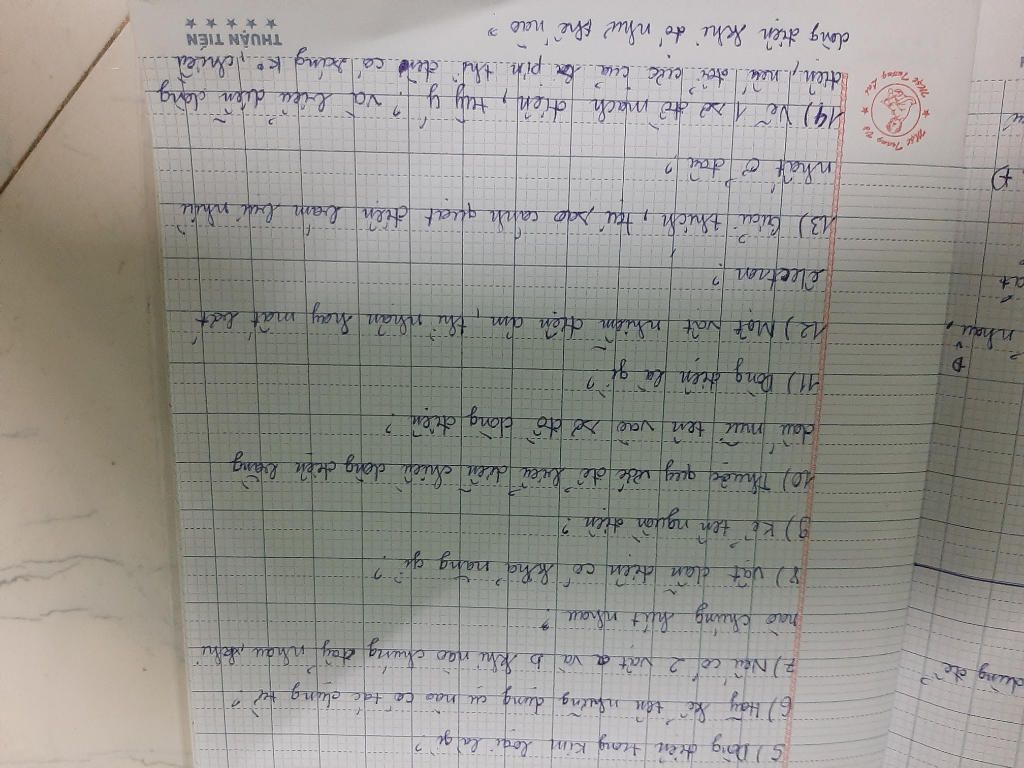 5) Dòng điện trong kim loại là gì?
6) Hãy kể tên những dụng cụ nào có tác dụng từ?
7) Nếu có 2 vật a và b khi nào chúng đẩy nhau, khi
nào chúng hút nhau?
8) Vật dẫn điện có khả năng gì?
9) Kể tên nguồn điện?
10) Thuộc quy ước để biểu diễn chiều dòng điện bằng
dấu mũi tên vào sơ đồ dòng điện?
11) Dòng điện là gì?
12) Một vật nhiễm điện âm, thì nhận hay mất bớt
electron?
13) Giải thích, tại sao cánh quạt điện bám bụi nhiều
nhất ở đâu?
14) Vẽ 1 sơ đồ mạch điện, tuỳ ý? và biểu diễn dòng
điện, nếu đổi cực của pin thì đèn có sáng k°, chiều
dòng điện khi đó như thế nào?
THUẬN TIẾN
dùng để?
nhau,